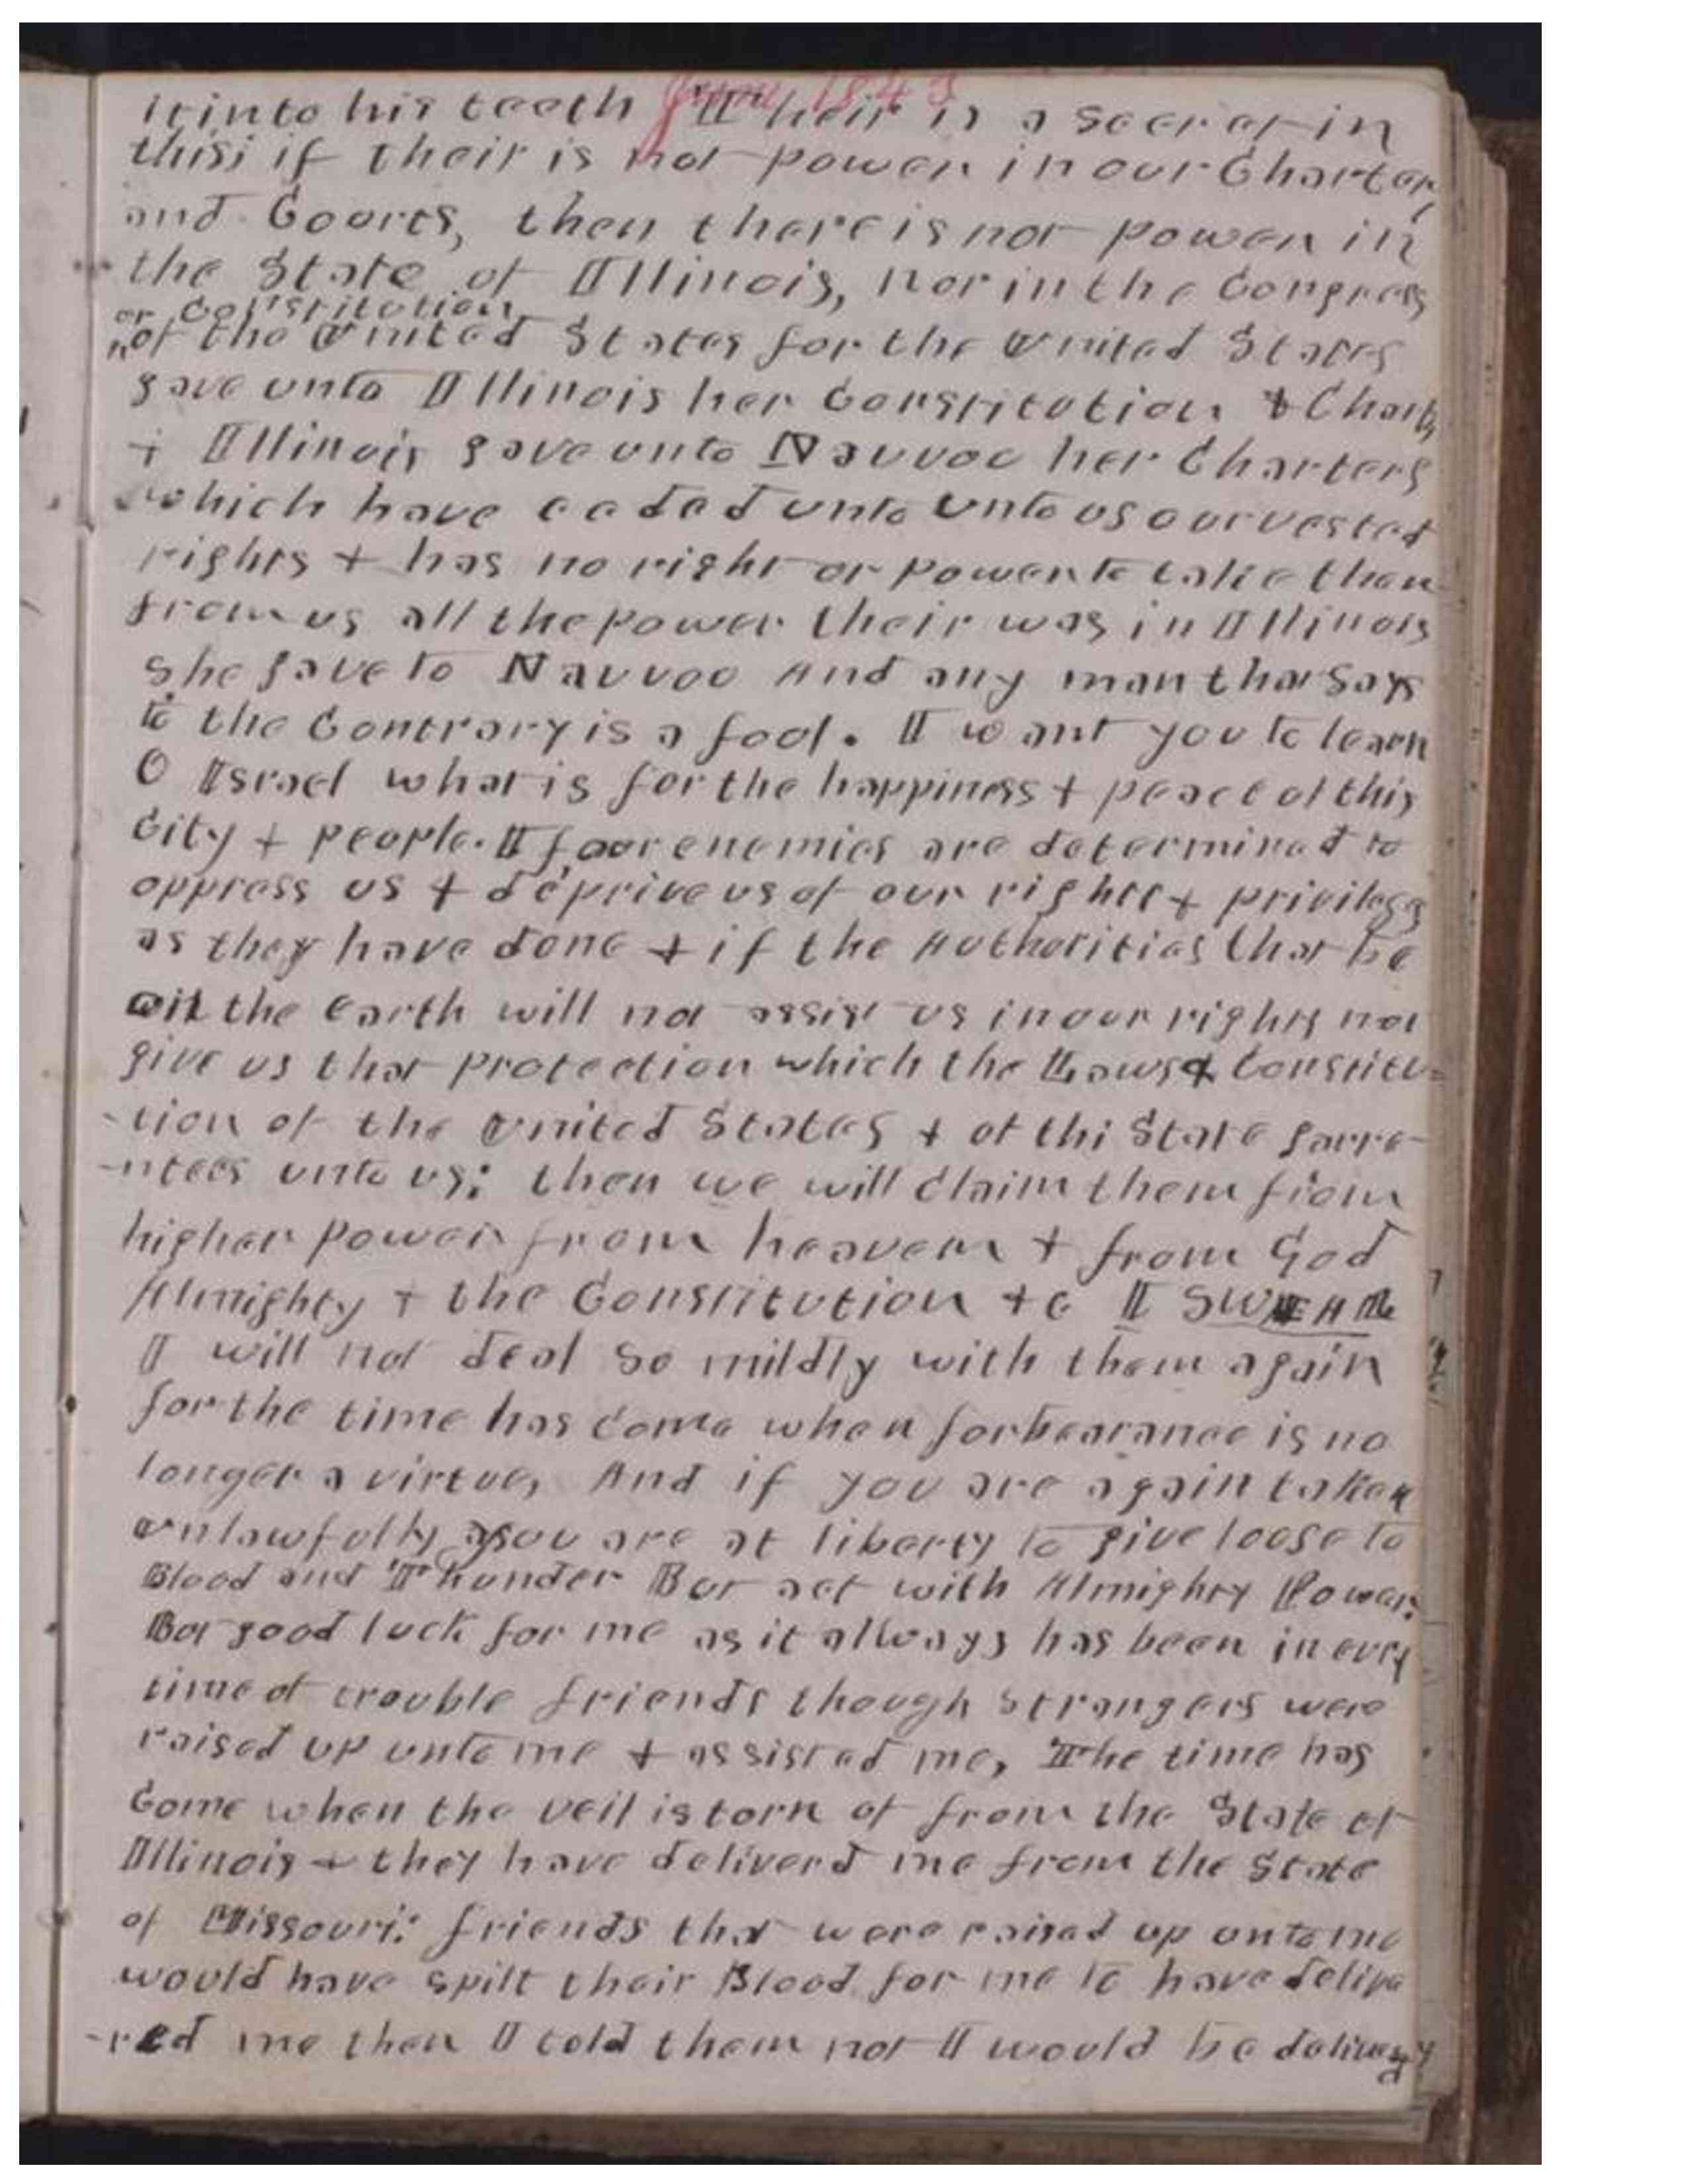 June 1843
it into his teeth Their is a secret in
thisi if their is not power in our Charter,
and Courts, then there is not power in
the State of Illinois, nor in the Congress
or Constitution
of the United States for the United States
gave unto Illinois her Constitution & Chart,
+ Illinois gave unto Nauvoo her Charters
which have ceded unto unto us our vested
rights + has no right or power to take them
from us all the power their was in Illinois
she gave to Nauvoo And any man that says
to the Contrary is a fool. I want you to learn
O Israel what is for the happiness + peace of this
City + people. If our enemies are determined to
oppress us + deprive us of our rights + privileges
as they have done + if the Authorities that be
on the earth will not assist us in our rights not
give us that protection which the Laws & Constitu=
-tion of the United States + of thi State garre-
-ntees unto us: then we will claim them from
higher power from heaven + from God
Almighty + the Constitution +c I SWEAR
I will not deal so mildly with them again
for the time has come when forbearance is no
longer a virtue, And if you are again taken
unlawfully you are at liberty to give loose to
Blood and Thunder But act with Almighty Power.
But good luck for me as it allways has been in evry
time of trouble friends though strangers were
raised up unto me + assisted me, The time has
Come when the veil is torn of from the State of
Illinois + they have deliverd me from the State
of Missouri: friends that were raised up unto me
would have spilt their Blood for me to have delive
-red me then I told them not I would be deliverd